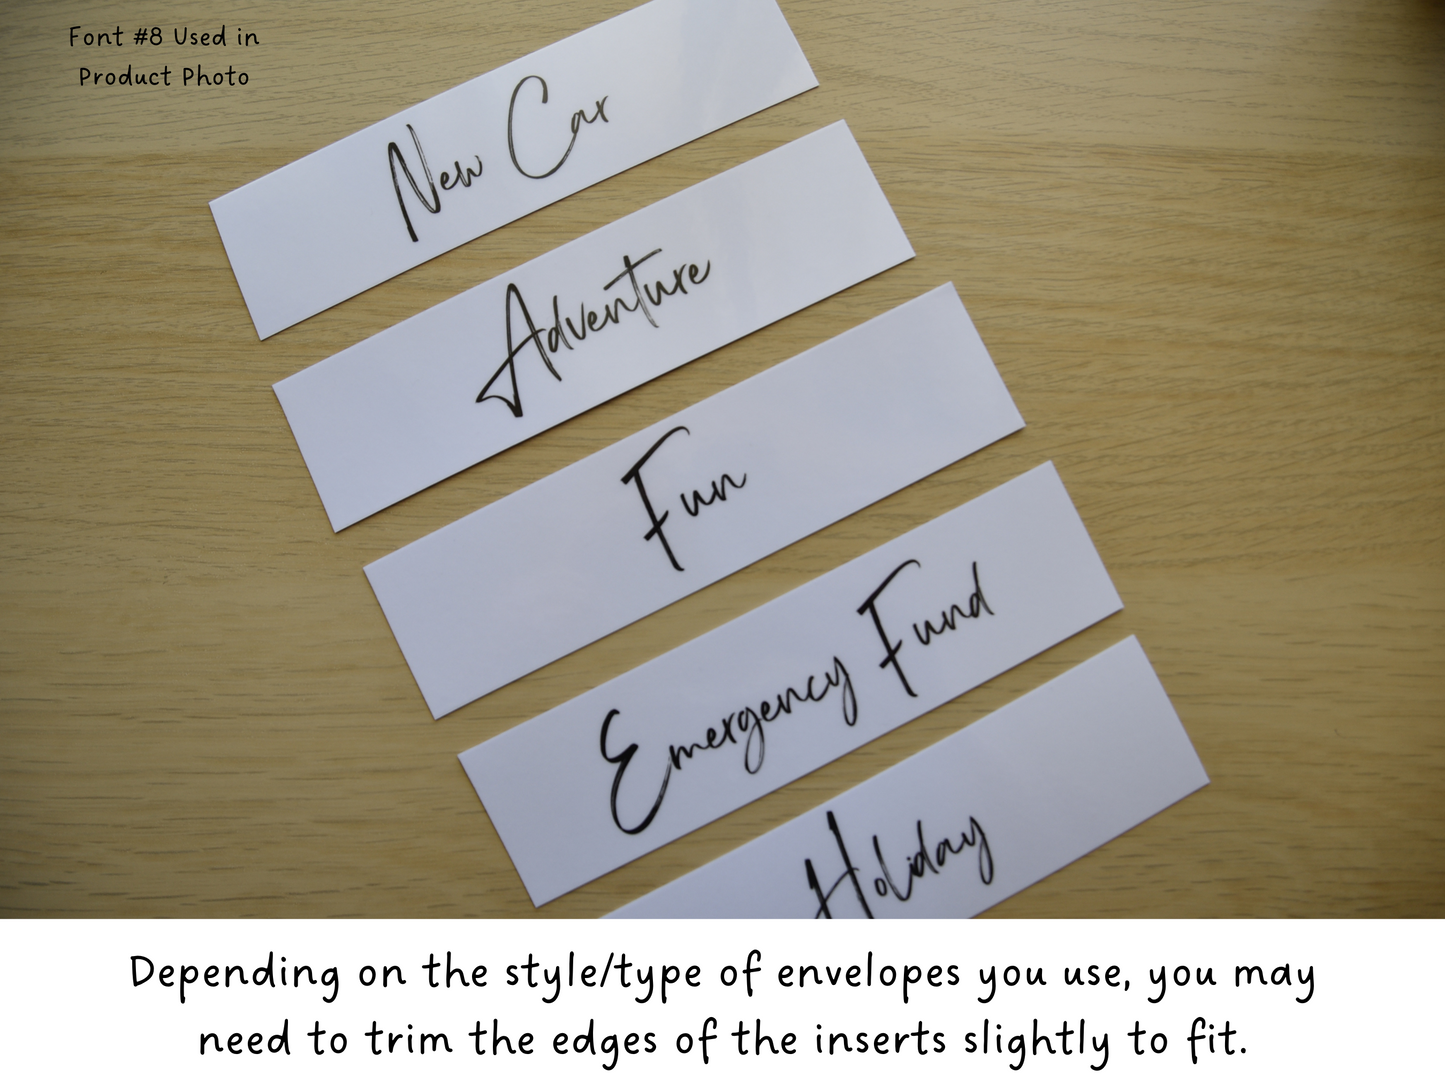 Font #8 Used in
Product Photo
New Car
Adventure
Fun
Emergency Fund
Holiday
Depending on the style/type of envelopes you use, you may
need to trim the edges of the inserts slightly to fit.